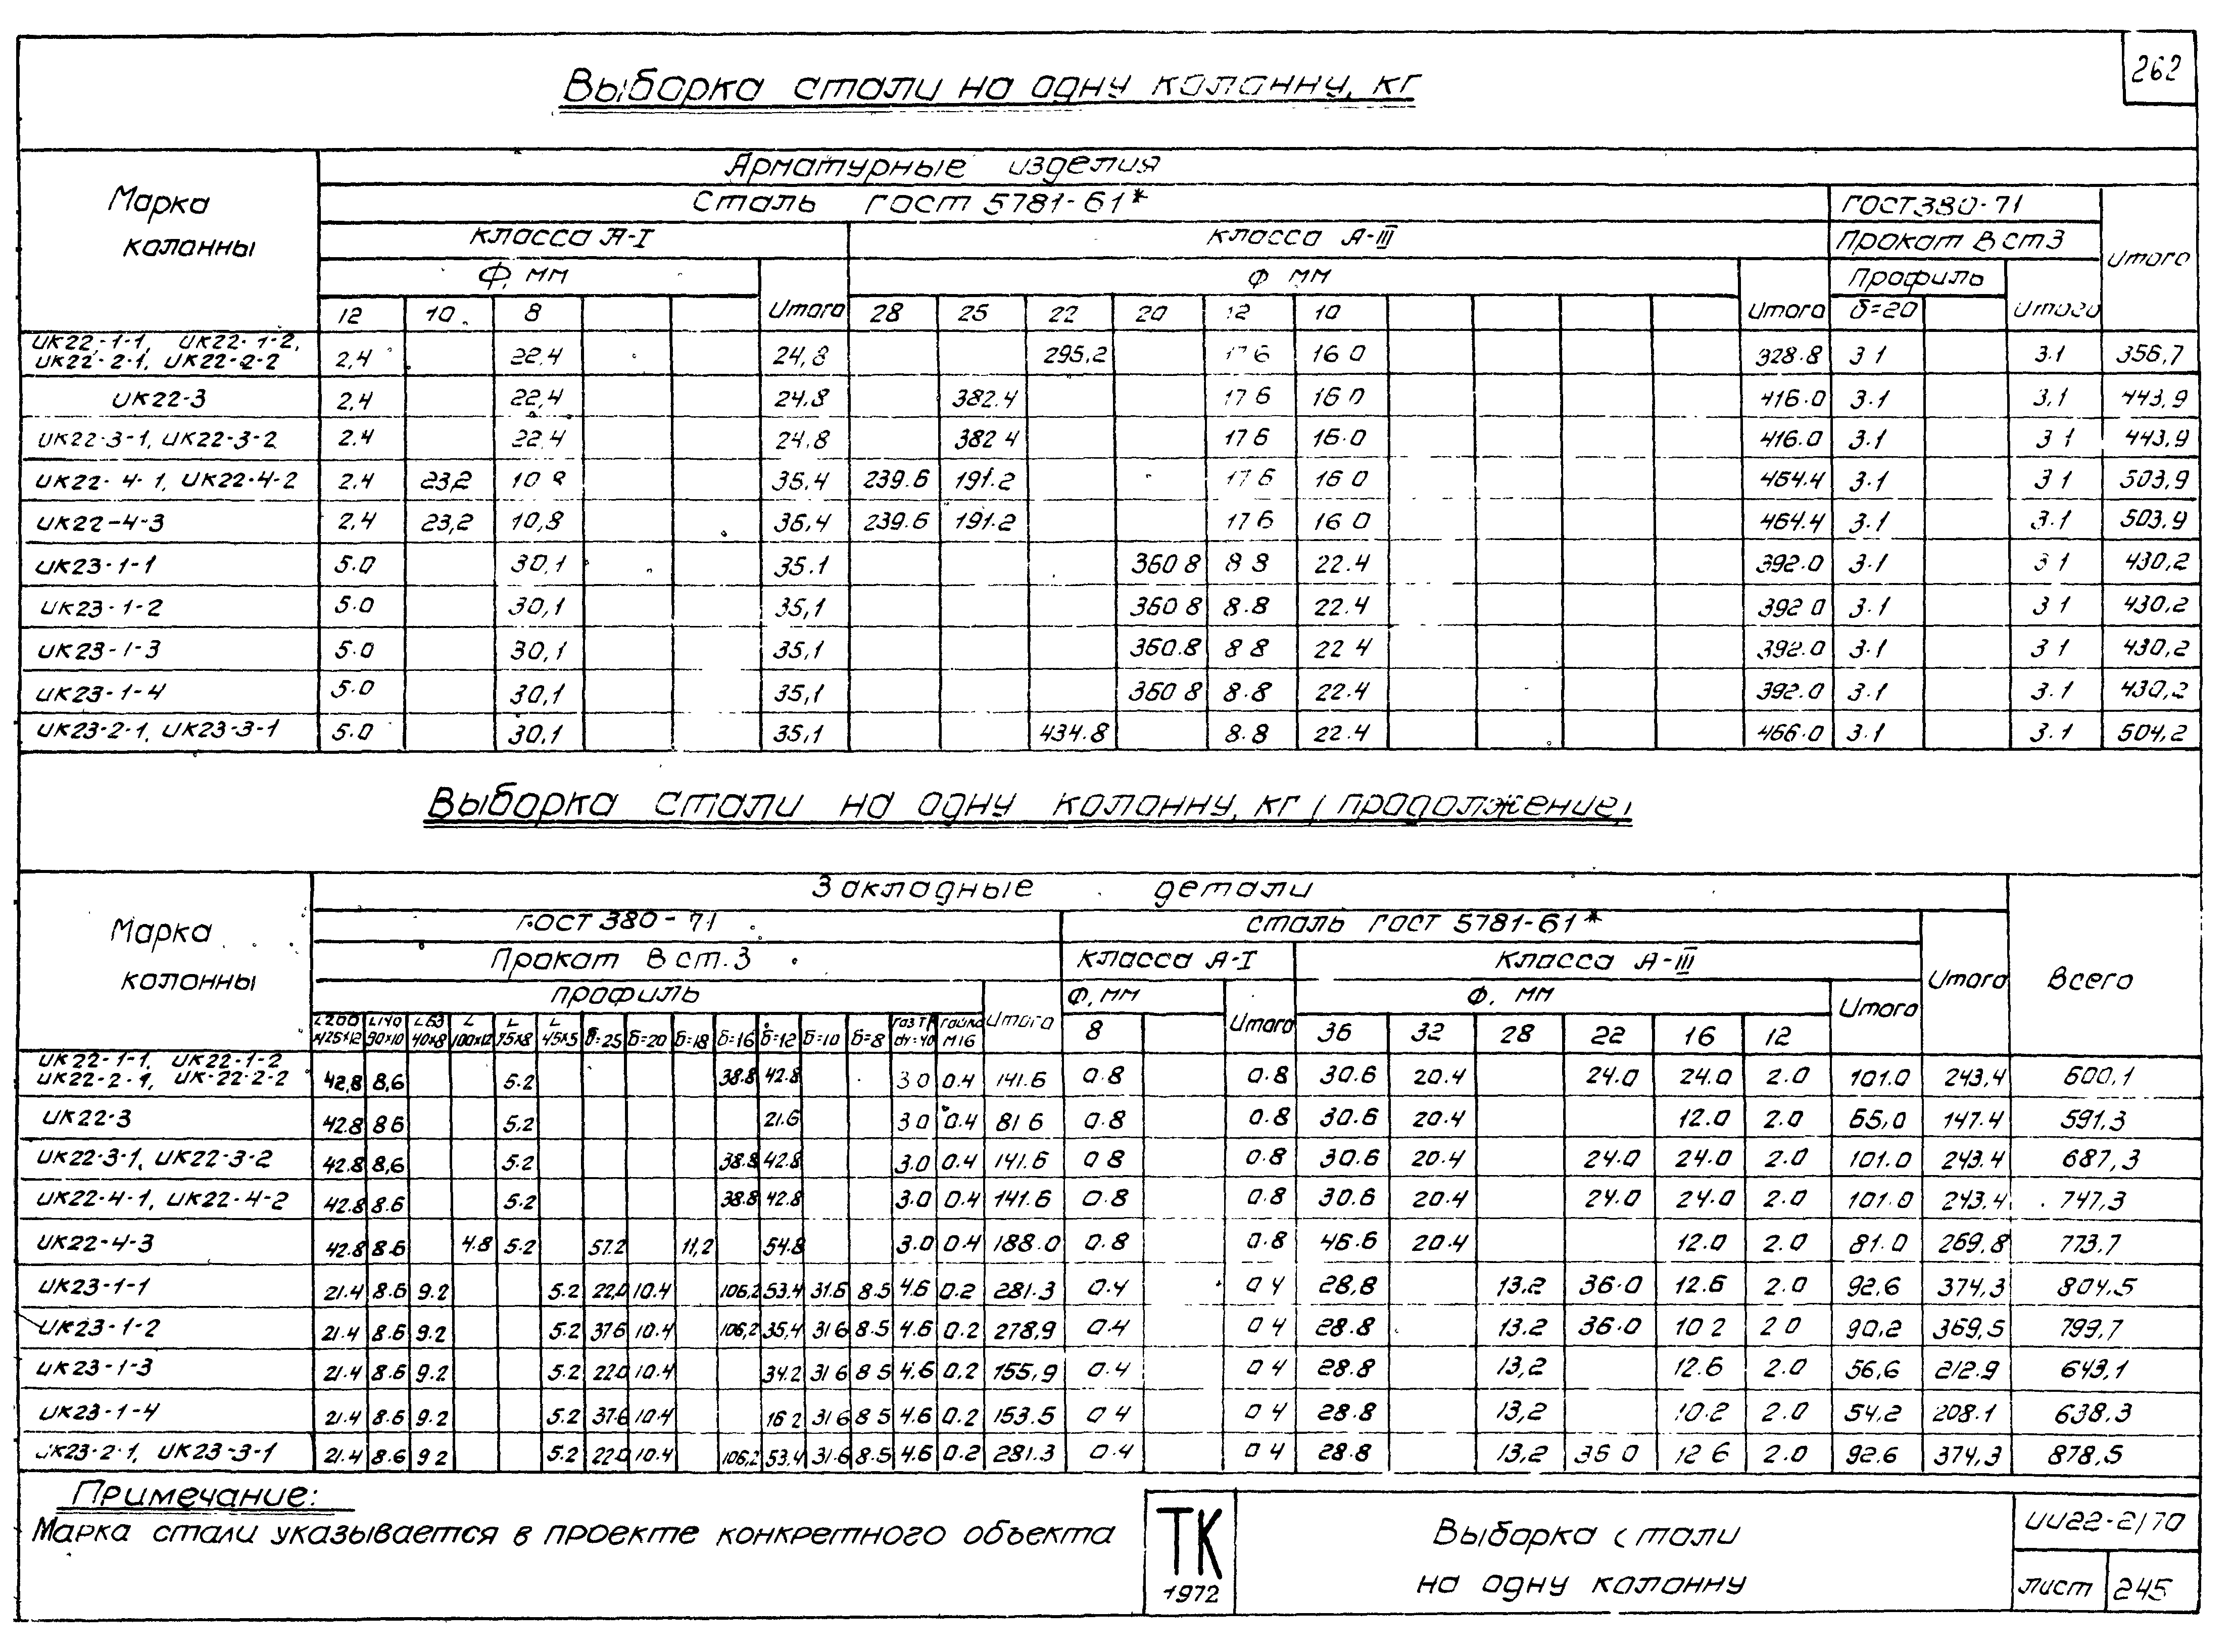 262
Выборка стали на одну колонну, кг
Марка колонны
Арматурные изделия
Сталь ГОСТ 5781-61*
ГОСТ 380-71
Итого
класса А-I
класса А-III
Прокат В ст 3
Ф, мм
Итого
Ф мм
Итого
Профиль
Итого
12 10 8 28 25 22 20 12 10 δ=20
ИК22-1-1, ИК22-1-2,
ИК22-2-1, ИК22-2-2 2,4 22,4 24,8 295,2 17 6 16 0 328.8 3 1 3.1 356,7
ИК22-3 2,4 22,4 24.8 382.4 17 6 16 0 416.0 3.1 3.1 443,9
ИК22-3-1, ИК22-3-2 2.4 22.4 24,8 382 4 17 6 16.0 416.0 3.1 3 1 443,9
ИК22-4-1, ИК22-4-2 2.4 23,2 10 8 36,4 239.6 191.2 17 6 16 0 464.4 3.1 3 1 503,9
ИК22-4-3 2,4 23,2 10,8 36,4 239.6 191.2 17 6 16 0 464.4 3.1 3.1 503,9
ИК23-1-1 5.0 30,1 35.1 360 8 8 8 22.4 392.0 3.1 3 1 430,2
ИК23-1-2 5.0 30,1 35,1 360 8 8.8 22.4 392 0 3.1 3 1 430,2
ИК23-1-3 5.0 30,1 35,1 360.8 8 8 22 4 392.0 3.1 3 1 430,2
ИК23-1-4 5.0 30,1 35,1 360 8 8.8 22.4 392.0 3.1 3.1 430,2
ИК23-2-1, ИК23-3-1 5.0 30,1 35,1 434.8 8.8 22.4 466.0 3.1 3.1 504,2
Выборка стали на одну колонну, кг (продолжение)
Марка колонны
Закладные детали
Всего
ГОСТ 380-71
сталь ГОСТ 5781-61*
Итого
Прокат В ст. 3
класса А-I
Класса А-III
профиль
Итого
Ф, мм
Итого
Ф, мм
Итого
L200 125x12 L140 90x10 L63 40x8 L 100x12 L 75x8 L 45x5 δ=25 δ=20 δ=18 δ=16 δ=12 δ=10 δ=8 газ тр dу=40 гайка М16 8 36 32 28 22 16 12
ИК22-1-1, ИК22-1-2
ИК22-2-1, ИК-22-2-2 42,8 8,6 5.2 38.8 42.8 3 0 0.4 141.6 0.8 0.8 30.6 20.4 24.0 24.0 2.0 101.0 243,4 600,1
ИК22-3 42.8 8 6 5,2 21.6 3 0 0.4 81 6 0.8 0.8 30.6 20.4 12.0 2.0 65,0 147.4 591,3
ИК22-3-1, ИК22-3-2 42.8 8,6 5.2 38.8 42.8 3.0 0.4 141.6 0 8 0.8 30.6 20.4 24.0 24.0 2.0 101.0 243.4 687,3
ИК22-4-1, ИК22-4-2 42.8 8.6 5.2 38.8 42.8 3.0 0.4 141.6 0.8 0.8 30.6 20.4 24.0 24.0 2.0 101.0 243.4 747,3
ИК22-4-3 42.8 8.6 4.8 5.2 57.2 11,2 54.8 3.0 0.4 188.0 0.8 0.8 46.6 20.4 12.0 2.0 81.0 269,8 773.7
ИК23-1-1 21.4 8.6 9.2 5.2 22,0 10.4 106,2 53.4 31.6 8.5 4.6 0.2 281.3 0.4 0 4 28,8 13.2 36.0 12.6 2.0 92,6 374,3 804,5
ИК23-1-2 21.4 8.6 9.2 5.2 37.6 10.4 106,2 35,4 31 6 8.5 4.6 0.2 278,9 0.4 0 4 28.8 13.2 36.0 10 2 2 0 90,2 369,5 799,7
ИК23-1-3 21.4 8.6 9.2 5.2 22.0 10.4 34.2 31 6 8 5 4.6 0.2 155,9 0.4 0 4 28.8 13,2 12.6 2.0 56,6 212.9 643,1
ИК23-1-4 21.4 8.6 9.2 5.2 37.6 10.4 16 2 31 6 8 5 4.6 0.2 153.5 0 4 0 4 28.8 13,2 10.2 2.0 54,2 208.1 638.3
ИК23-2-1, ИК23-3-1 21.4 8.6 9 2 5.2 22.0 10.4 106,2 53.4 31.6 8.5 4.6 0.2 281.3 0.4 0 4 28.8 13,2 36 0 12 6 2.0 92.6 374,3 878,5
Примечание:
Марка стали указывается в проекте конкретного объекта
ТК
1972
Выборка стали
на одну колонну
ИИ22-2/70
лист 245